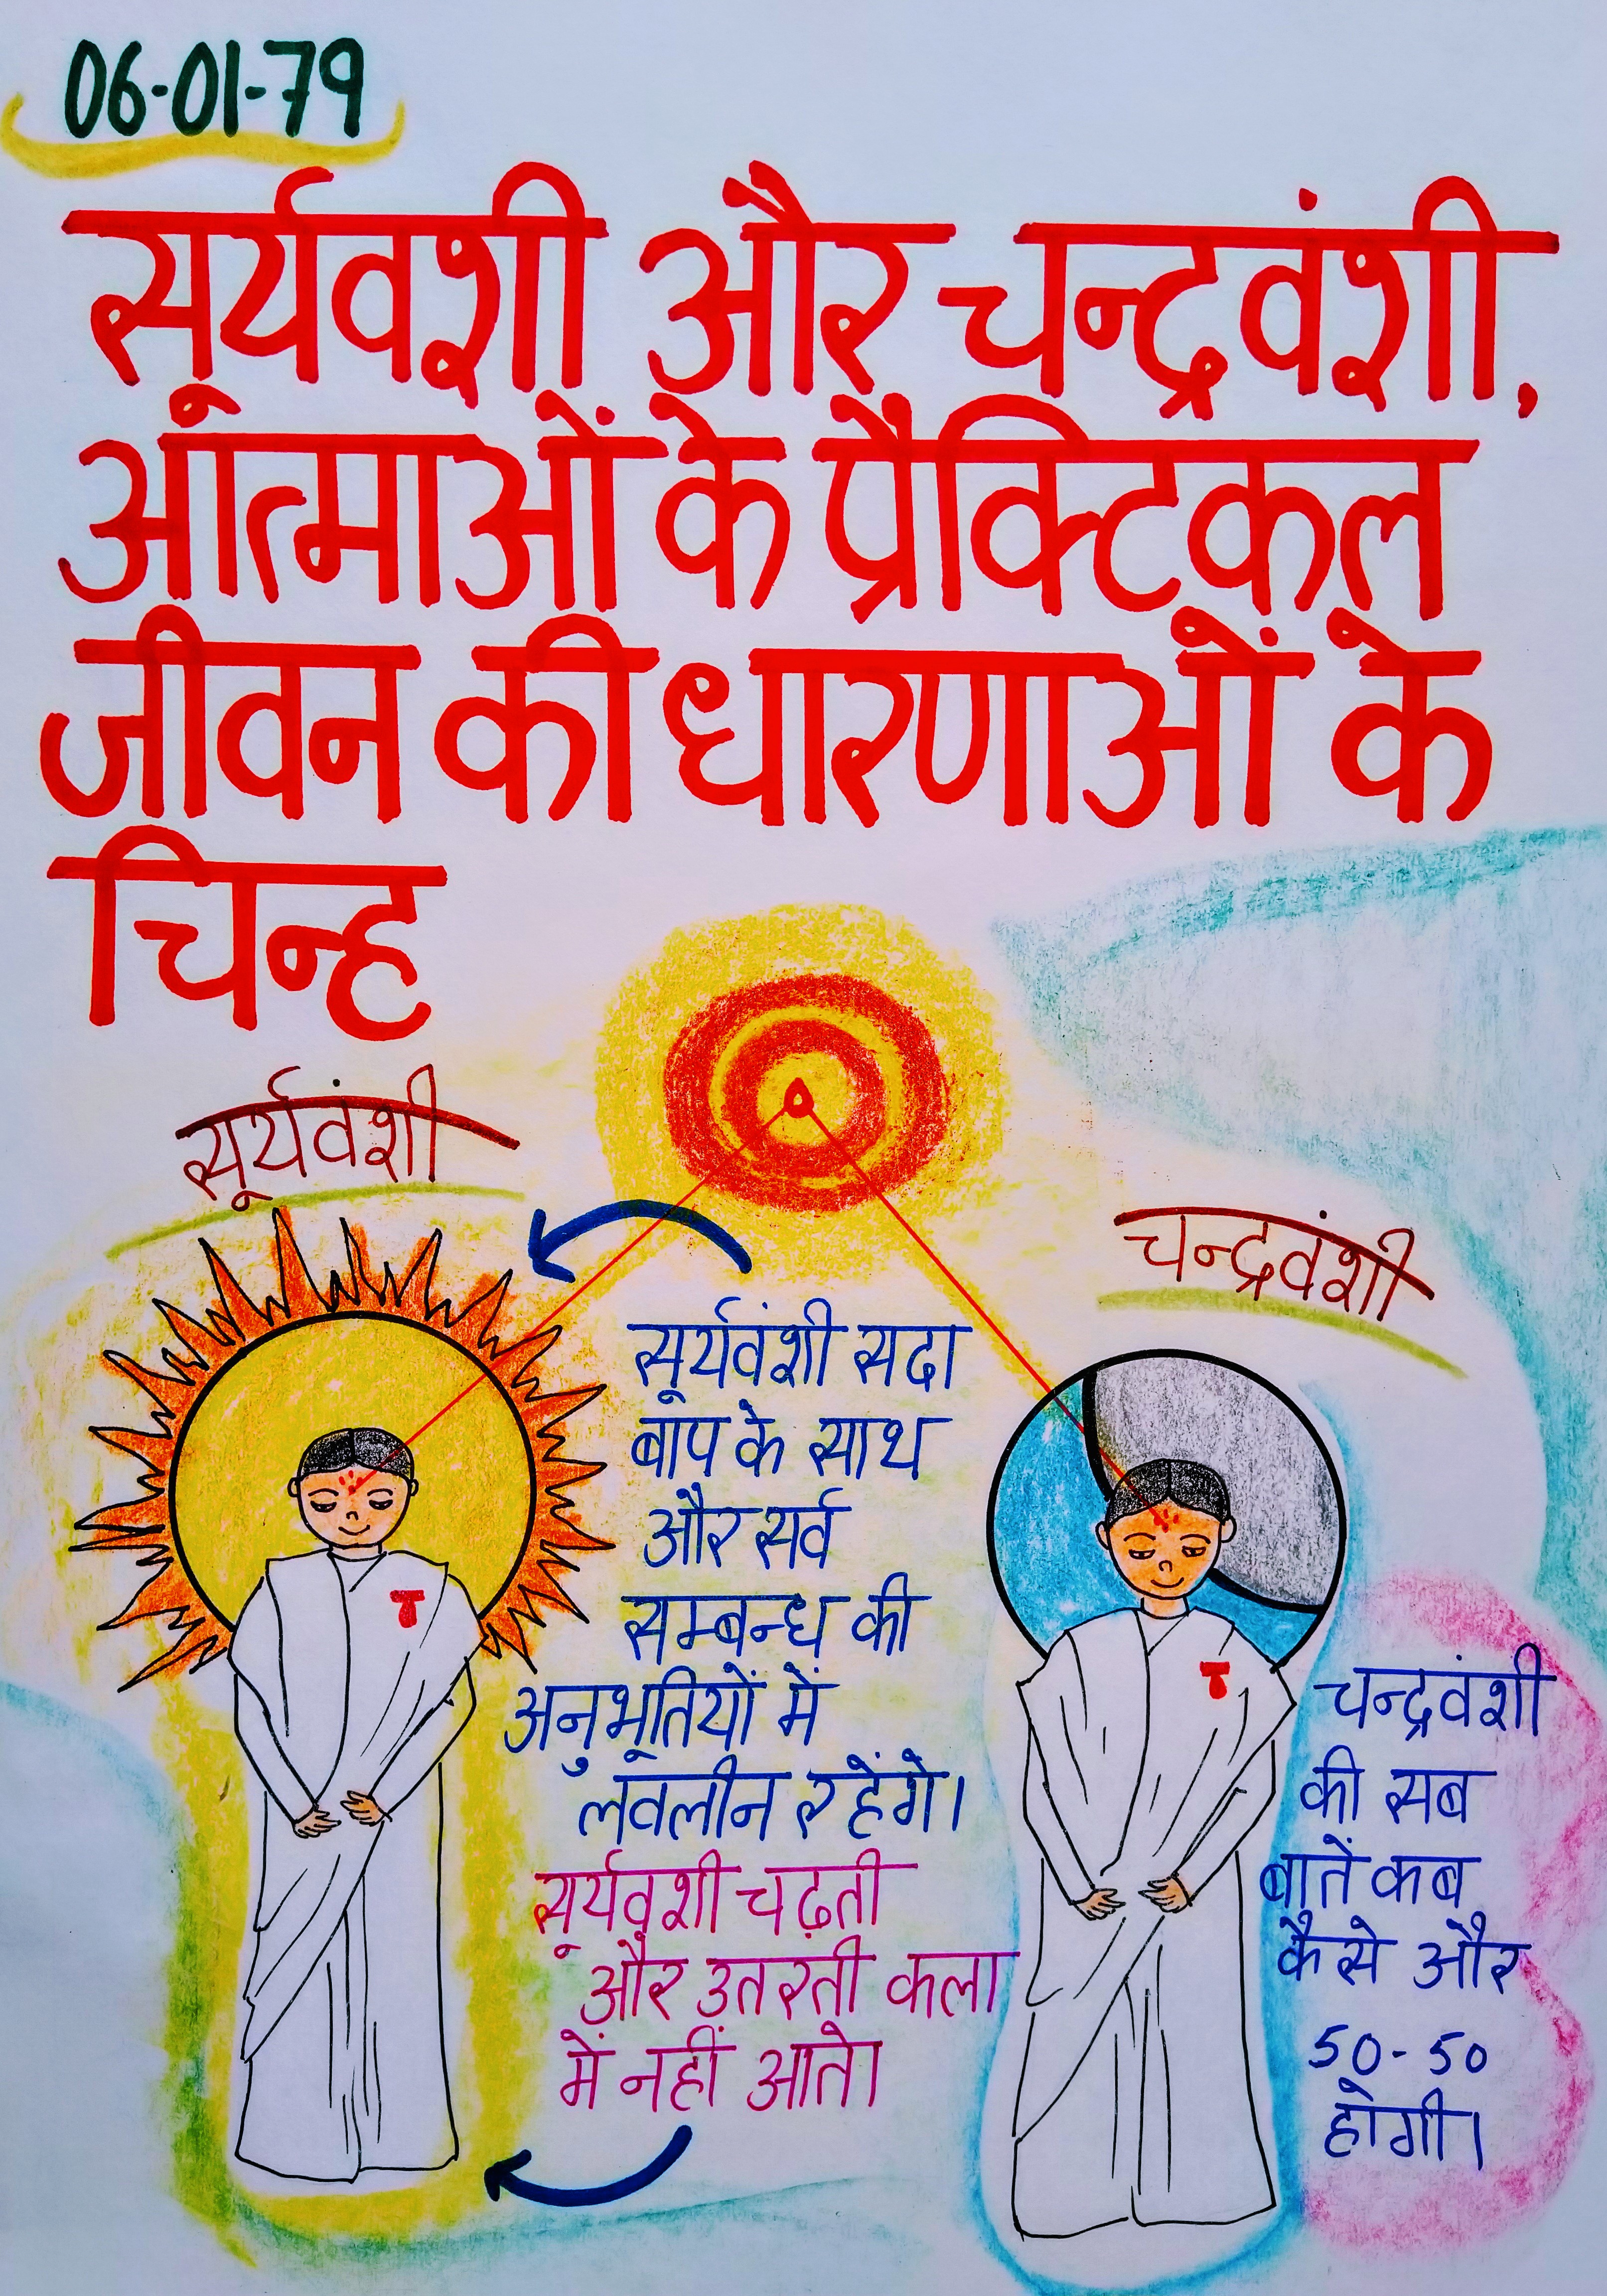 06-01-79
सूर्यवशी और चन्द्रवंशी,
आत्माओं के प्रैक्टिकल
जीवन की धारणाओं के
चिन्ह
सूर्यवंशी
चन्द्रवंशी
सूर्यवंशी सदा
बाप के साथ
और सर्व
सम्बन्ध की
अनुभूतियों में
लवलीन रहेंगे।
सूर्यवशी चढ़ती
और उतरती कला
में नहीं आते।
चन्द्रवंशी
की सब
बातें कब
कैसे और
50-50
होगी।